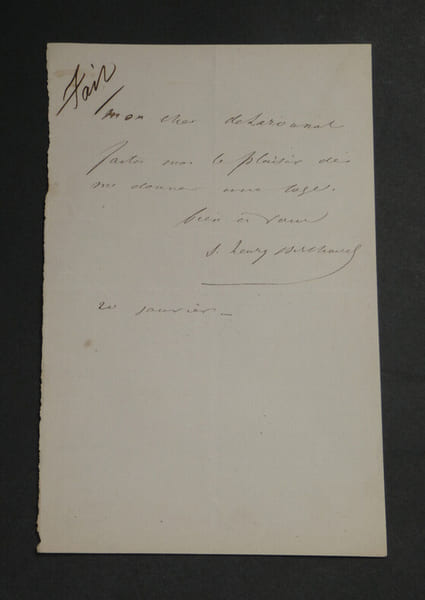 Fait
mon cher
faites moi le plaisir de
me donner une loge.
bien à vous
S. henry Berthoud
20 janvier